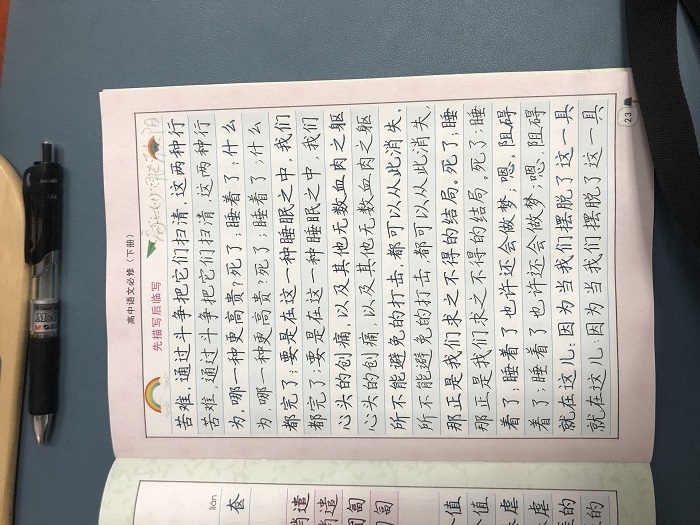 高中语文必修（下册）
先描写后临写
苦难，通过斗争把它们扫清，这两种行
苦难，通过斗争把它们扫清，这两种行
为，哪一种更高贵？死了；睡着了；什么
为，哪一种更高贵？死了；睡着了；什么
都完了；要是在这一种睡眠之中，我们
都完了；要是在这一种睡眠之中，我们
心头的创痛，以及其他无数血肉之躯
心头的创痛，以及其他无数血肉之躯
所不能避免的打击，都可以从此消失，
所不能避免的打击，都可以从此消失，
那正是我们求之不得的结局。死了；睡
那正是我们求之不得的结局。死了；睡
着了；睡着了也许还会做梦；嗯，阻碍
着了；睡着了也许还会做梦；嗯，阻碍
就在这儿：因为当我们摆脱了这一具
就在这儿：因为当我们摆脱了这一具
23
lián
奁
遣
遣
甸
甸
值
值
虐
虐
的
的